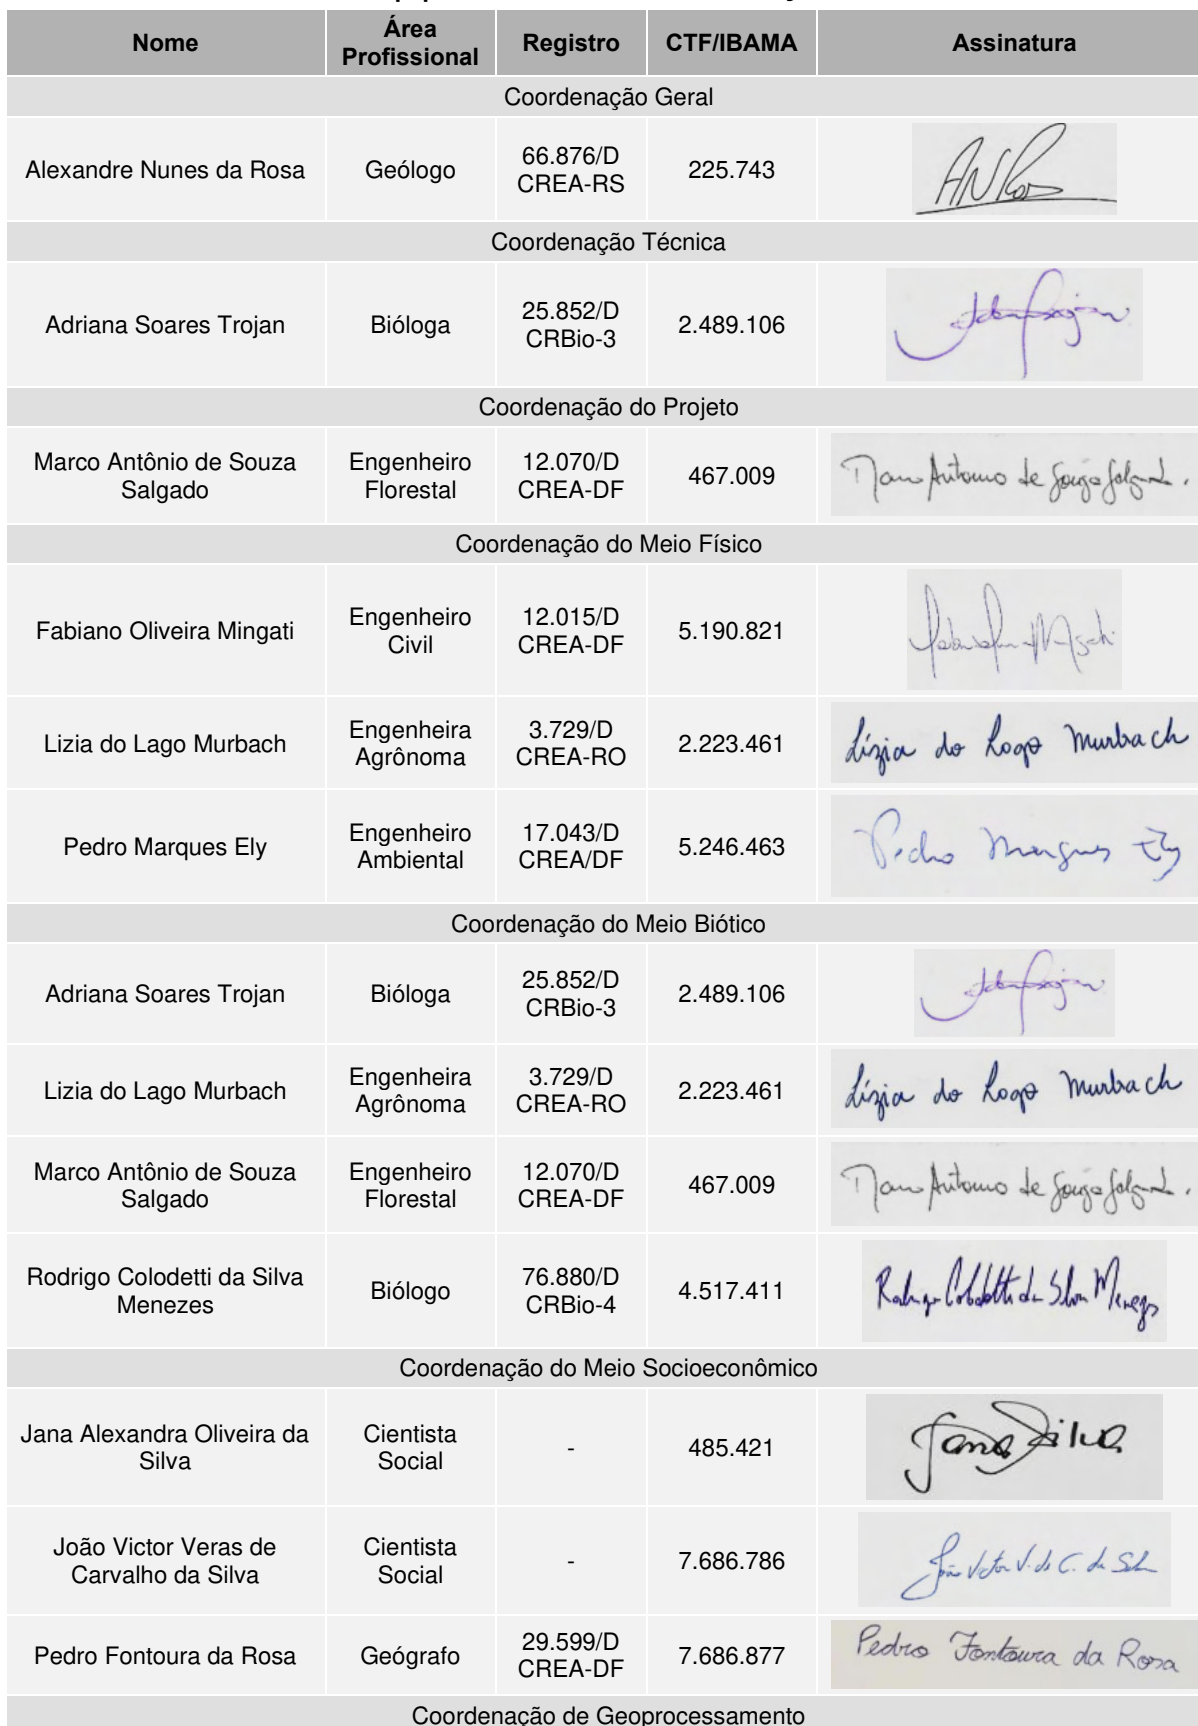 Nome
Área
Profissional
Registro
CTF/IBAMA
Assinatura
Coordenação Geral
Alexandre Nunes da Rosa
Geólogo
66.876/D
CREA-RS
225.743
Coordenação Técnica
Adriana Soares Trojan
Bióloga
25.852/D
CRBio-3
2.489.106
Coordenação do Projeto
Marco Antônio de Souza
Salgado
Engenheiro
Florestal
12.070/D
CREA-DF
467.009
Coordenação do Meio Físico
Fabiano Oliveira Mingati
Engenheiro
Civil
12.015/D
CREA-DF
5.190.821
Lizia do Lago Murbach
Engenheira
Agrônoma
3.729/D
CREA-RO
2.223.461
Lízia do Lago Murbach
Pedro Marques Ely
Engenheiro
Ambiental
17.043/D
CREA/DF
5.246.463
Pedro Marques Ely
Coordenação do Meio Biótico
Adriana Soares Trojan
Bióloga
25.852/D
CRBio-3
2.489.106
Lizia do Lago Murbach
Engenheira
Agrônoma
3.729/D
CREA-RO
2.223.461
Lízia do Lago Murbach
Marco Antônio de Souza
Salgado
Engenheiro
Florestal
12.070/D
CREA-DF
467.009
Rodrigo Colodetti da Silva
Menezes
Biólogo
76.880/D
CRBio-4
4.517.411
Rodrigo Colodetti da Silva Menezes
Coordenação do Meio Socioeconômico
Jana Alexandra Oliveira da
Silva
Cientista
Social
-
485.421
Jana Silva
João Victor Veras de
Carvalho da Silva
Cientista
Social
-
7.686.786
João Victor V. de C. da Silva
Pedro Fontoura da Rosa
Geógrafo
29.599/D
CREA-DF
7.686.877
Pedro Fontoura da Rosa
Coordenação de Geoprocessamento